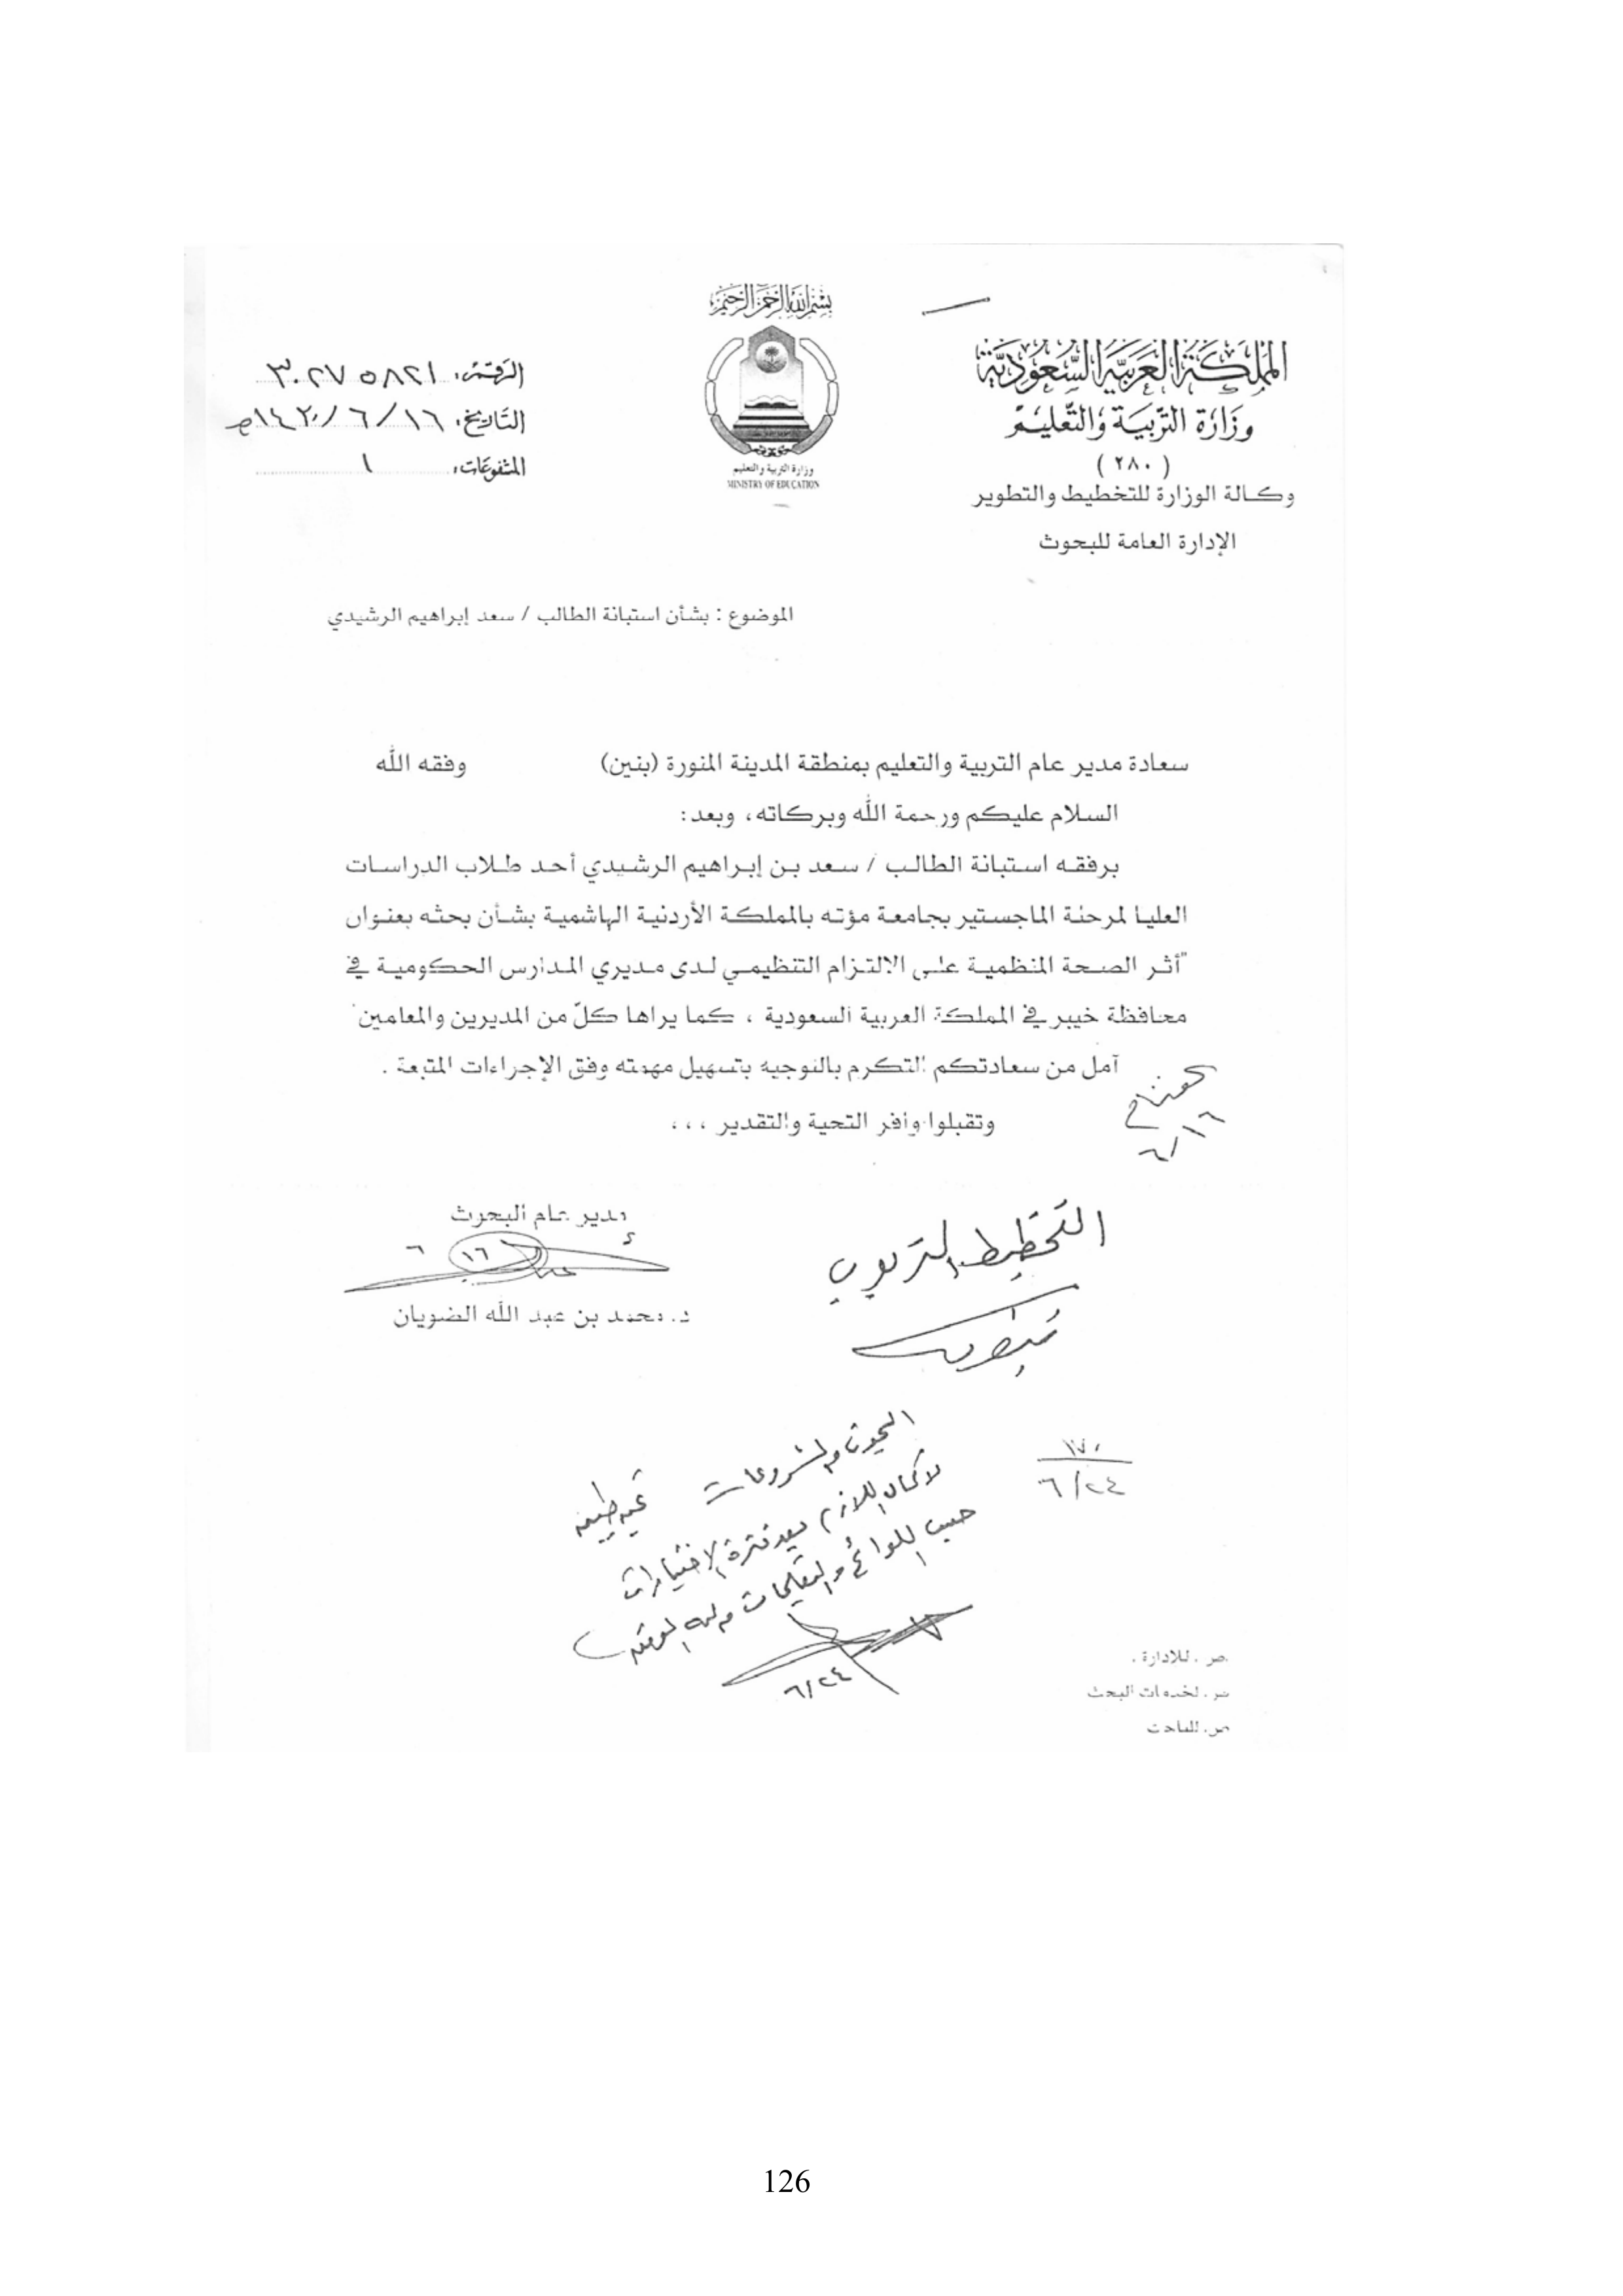 بسم الله الرحمن الرحيم
المملكة العربية السعودية
وزارة التربية والتعليم
(٢٨٠)
وكالة الوزارة للتخطيط والتطوير
الإدارة العامة للبحوث
وزارة التربية والتعليم
MINISTRY OF EDUCATION
الرقم: ٣٠٢٧٥٨٢١
التاريخ: ١٦/٦/١٤٣٠هـ
المشفوعات: ١
الموضوع : بشأن استبانة الطالب / سعد إبراهيم الرشيدي
سعادة مدير عام التربية والتعليم بمنطقة المدينة المنورة (بنين) وفقه الله
السلام عليكم ورحمة الله وبركاته، وبعد:
برفقه استبانة الطالب / سعد بن إبراهيم الرشيدي أحد طلاب الدراسات
العليا لمرحلة الماجستير بجامعة مؤته بالمملكة الأردنية الهاشمية بشأن بحثه بعنوان
"أثر الصحة المنظمية على الالتزام التنظيمي لدى مديري المدارس الحكومية في
محافظة خيبر في المملكة العربية السعودية ، كما يراها كلّ من المديرين والمعلمين"
آمل من سعادتكم التكرم بالتوجيه بتسهيل مهمته وفق الإجراءات المتبعة .
وتقبلوا وافر التحية والتقدير ، ، ،
٦/١٦
مدير عام البحوث
١٦ ٦
د. محمد بن عبد الله الضويان
التخطيط التربوي
البحوث والمشروعات
لإكمال اللازم بعد فترة الاختبارات
حسب اللوائح والتعليمات
٦/٢٤
١٧٠
٦/٢٤
ص. للإدارة .
ص. لخدمات البحث
ص. للباحث
126